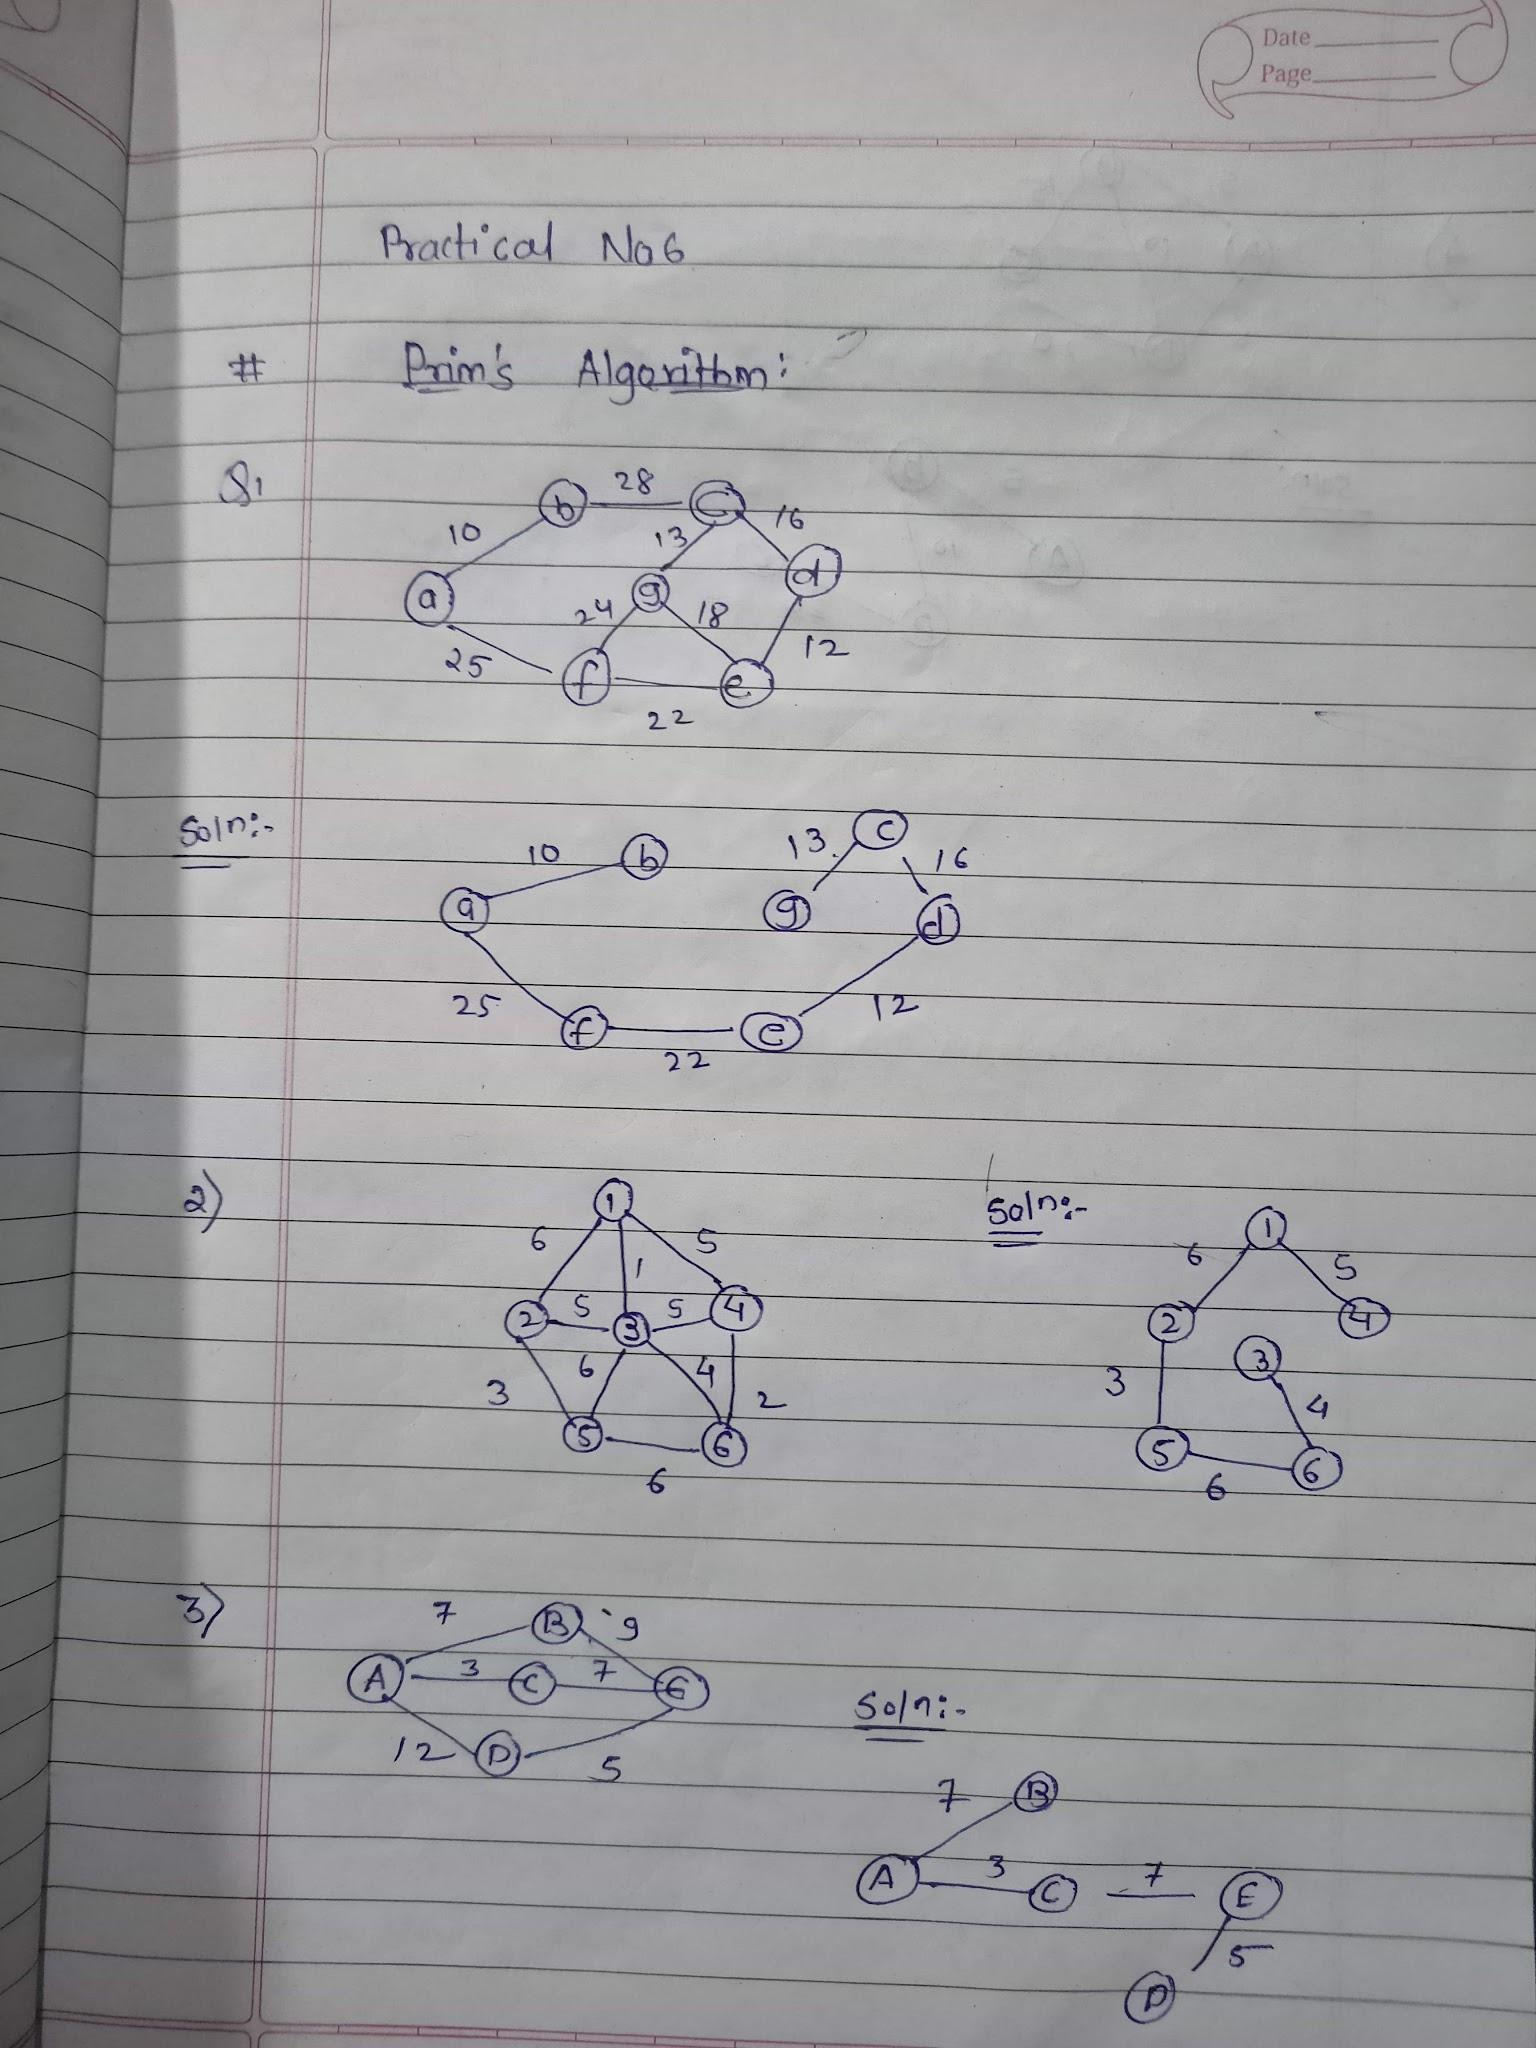 Date
Page
Practical No 6
# Prim's Algorithm:
Q1
b 28 C
10 13 16
a g d
24 18
25 12
f e
22
Soln:-
10 b 13 C 16
a g d
25 12
f e
22
2)
1
6 1 5
2 5 3 5 4
3 6 4 2
5 6
6
Soln:-
1
6 5
2 4
3 3 4
5 6
6
3)
7 B 9
A 3 C 7 E
12 D 5
Soln:-
7 B
A 3 C 7 E
5
D